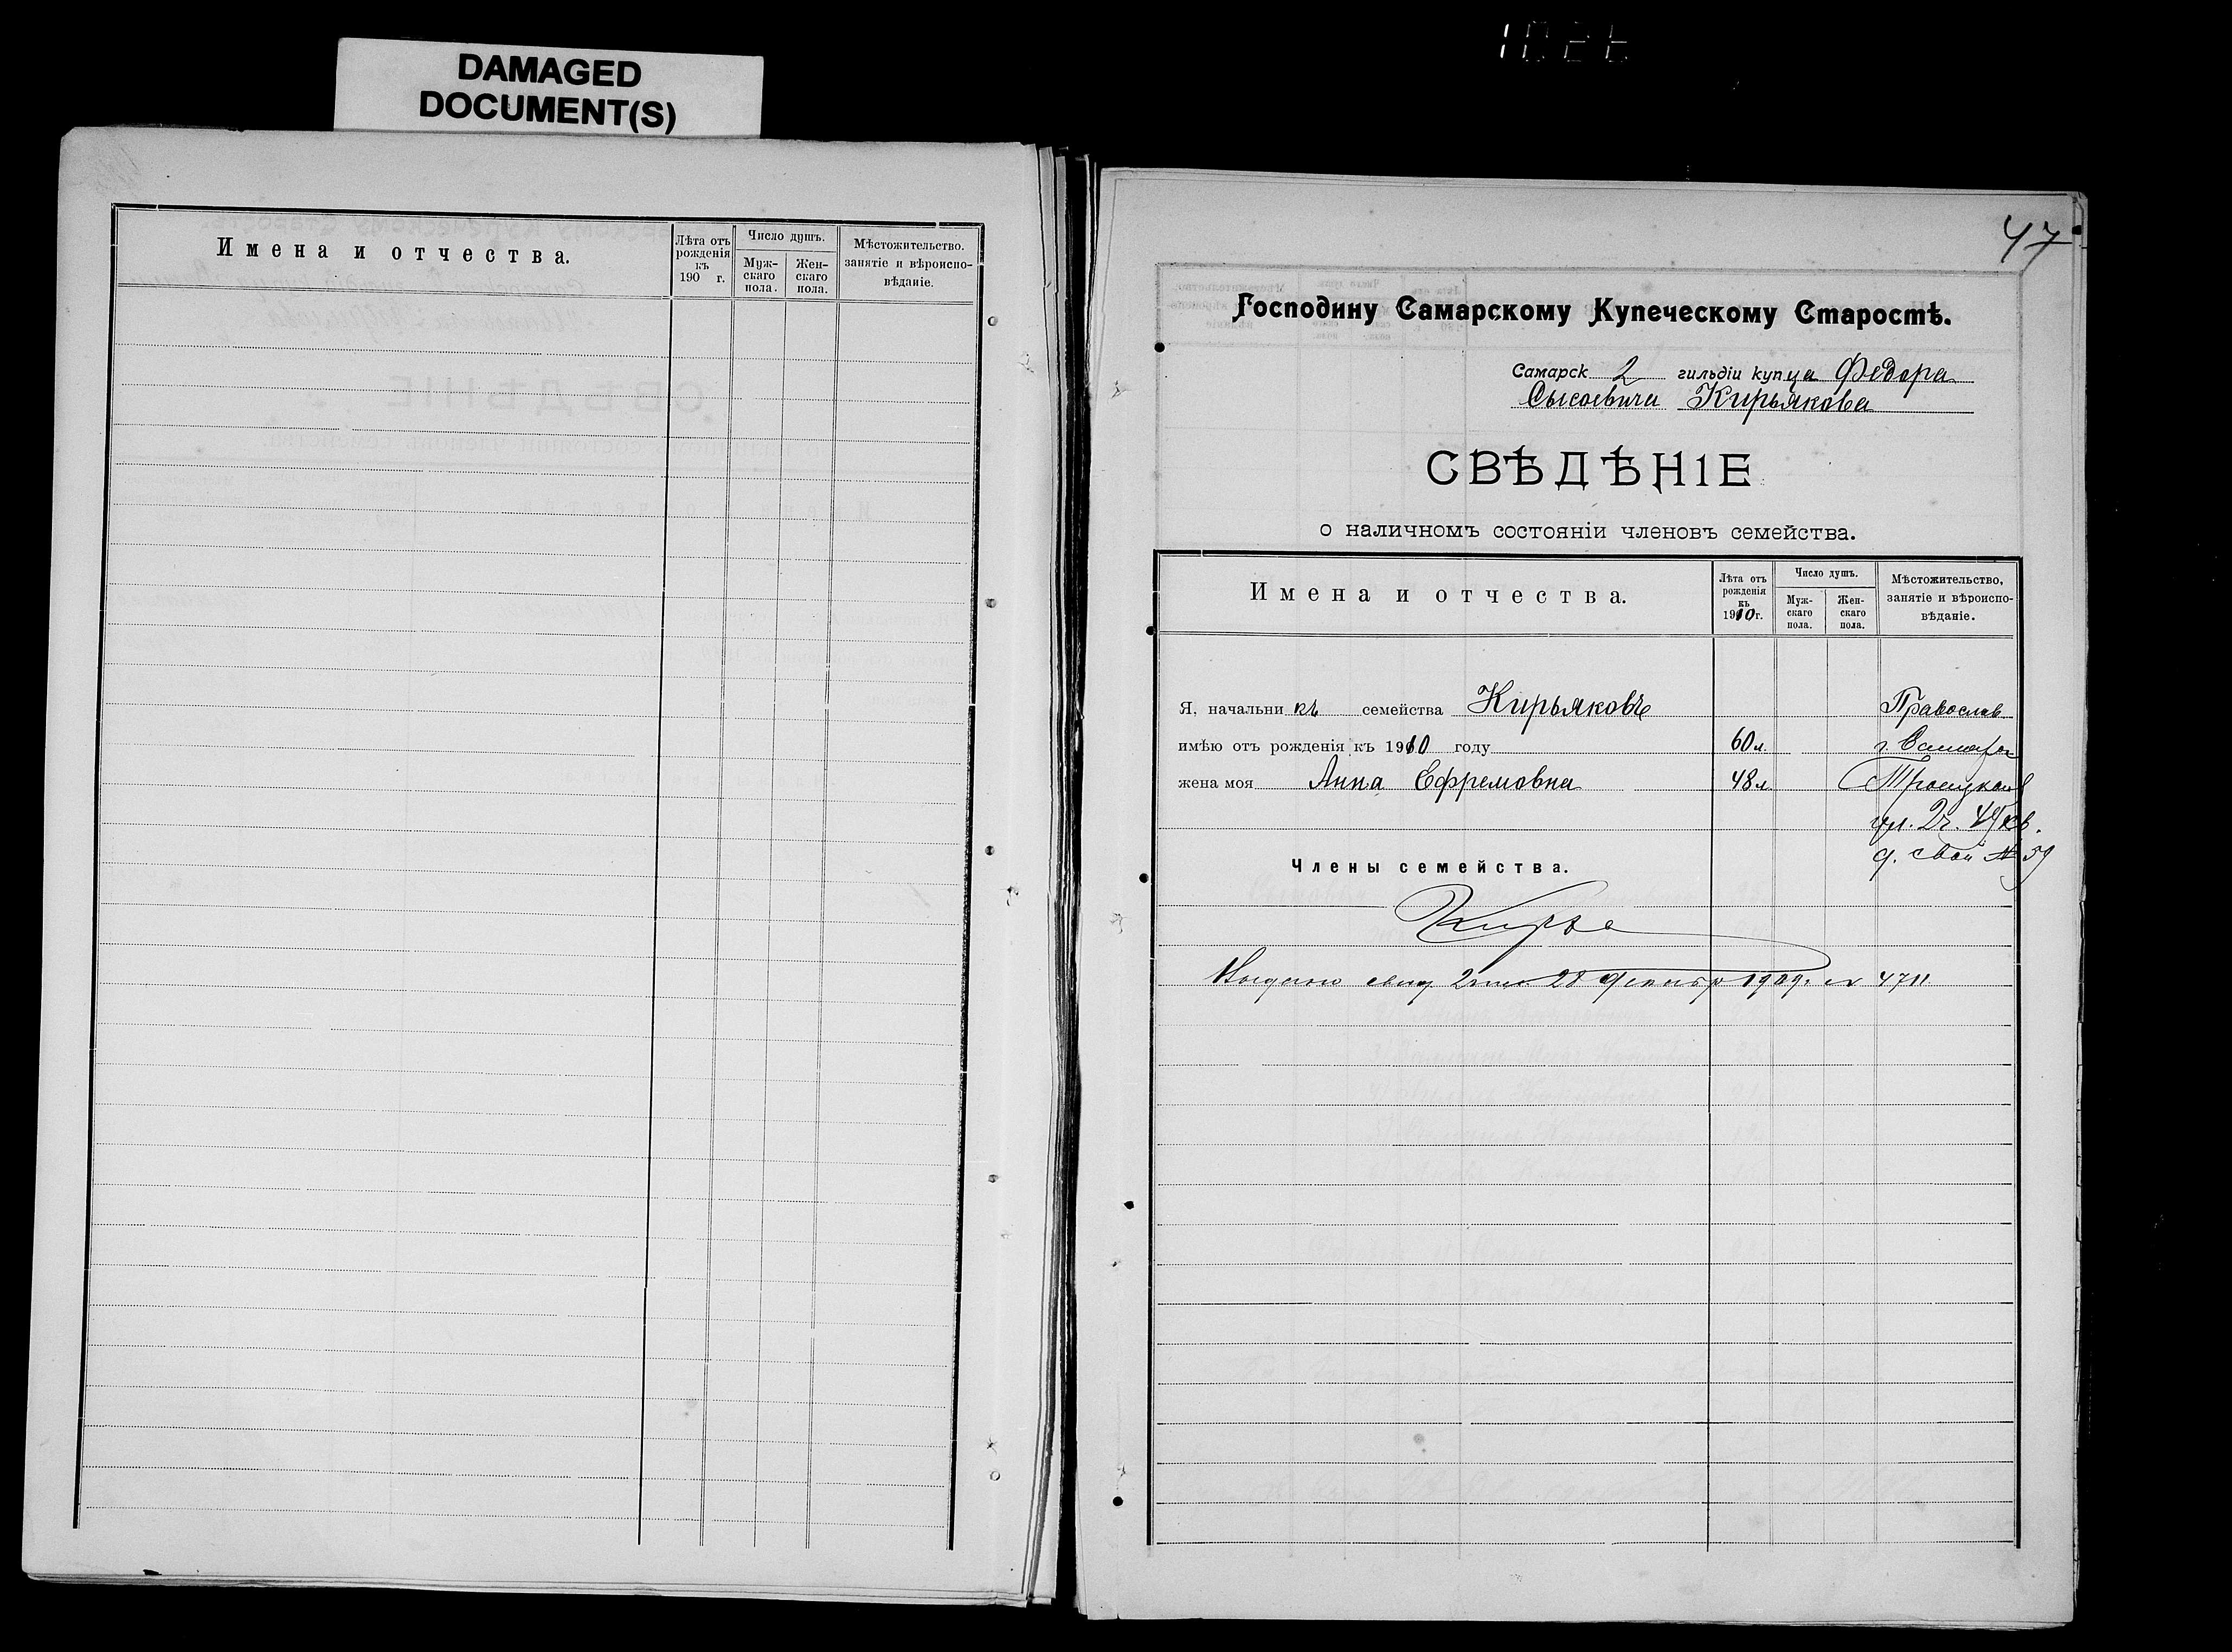 DAMAGED
DOCUMENT(S)
Имена и отчества.
Лѣта отъ рожденія къ 190 г.
Число душъ.
Муж-
скаго
пола.
Жен-
скаго
пола.
Мѣстожительство.
занятіе и вѣроиспо-
вѣданіе.
47
Господину Самарскому Купеческому Старостѣ.
Самарск 2 гильдіи купца Федора
Сысоевича Кирьякова
СВѢДѢНІЕ
о наличномъ состояніи членовъ семейства.
Имена и отчества.
Лѣта отъ
рожденія
къ
1910 г.
Число душъ.
Муж-
скаго
пола.
Жен-
скаго
пола.
Мѣстожительство,
занятіе и вѣроиспо-
вѣданіе.
Я, начальникъ семейства Кирьяковъ Православ
имѣю отъ рожденія къ 1910 году 60 л. г. Самара
жена моя Анна Ефремовна 48 л. Троицкая
ул. 2 ч. 49 кв.
д. свой № 59
Члены семейства.
Кирья
Выдано свид 2 гил. 28 Декабр 1909 г. № 4711